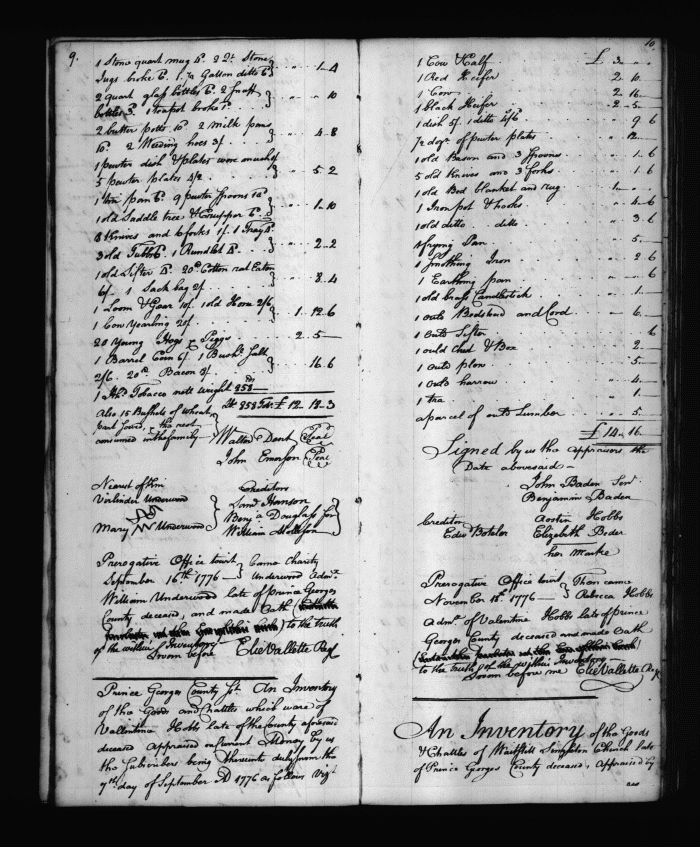 9.
1 Stone quart mug 4d. 2 2qt. Stone
Jugs broke 6. 1 7a Gallon ditto 6d } " 1 - 4
2 quart glass bottles 6. 2 Snoff
bottles 3d. 1 teapot broke 1d. } " " 10
2 butter potts 10d. 2 milk pans
10d. 2 Weeding hoes 3/. } " 4 - 8
1 pewter dish & plates wore much of
5 pewter plates 4/2. } " 5 - 2
1 tin pan 6d. 9 pewter spoons 12d.
1 old Saddle tree & Crupper 6d. } " 1 - 10
8 Knives and 6 forks 1/. 1 Tray 4d.
3 old Tubbs 6d. 1 Rundlet 4d. } " 2 - 2
1 old Sifter 4d. 20lb Cotton rat Eaten
6/. 1 Sack bag 2/. } " 8 - 4
1 Loom & Gear 10/. 1 old Horse 2/6
1 Cow Yearling 20/. } 1 " 12 - 6
20 Young Hogs & Piggs 2 - 5 -
1 Barrel Corn 6/. 1 Bushl. Salt
2/6. 20lb. Bacon 8/. } 16 - 6
1 Hhd. Tobacco nett weight 858
Also 15 Bushels of Wheat lb 858 Tob. £ 12 - 12 - 3
part sowed, & the rest
consumed in the family
Walter Dent (Seal)
John Emerson (Seal)
Nearest of Kin
Verlinder Underwood
Mary Underwood
Creditors
Saml Hanson
Benja Douglass Jnr
William Mollison
Prerogative Office Court
September 16th 1776 } Came Charity
Underwood Admx.
William Underwood late of prince Georges
County deceased, and made Oath
to the truth
of the within Inventory
Sworn before Elie Vallette Regr
Prince Georges County Sct. An Inventory
of the Goods and Chattles which ware of
Vallentine Hobbs late of the County aforesaid
deceased appraised in Current Money by us
the Subscribers being thereunto duly sworn the
7th day of September AD 1776 as follows Vizt
10.
1 Cow & Calf £ 3 " "
1 Red Heifer 2 - 10
1 Cow 2 - 16 -
1 black Heifer 2 - 5 -
1 dish 5/. 1 ditto 4/6 9 6
1/2 doz of pewter plates " 12 -
1 old Bason and 3 Spoons " 1 - 6
5 old Knives and 3 forks " 1 - 6
1 old Bed blanket and rug 1 - "
1 Iron pot & hooks " 4 - 6
1 old ditto ditto " 3 - 6
1 frying Pan " 5 -
1 Smothing Iron " 2 6
1 Earthing pan " " 6
1 old brass Candlestick " 1 -
1 outs Bedstead and Cord " 6 -
1 outs Sifter 6
1 ould Chest & Box 2 -
1 outs plow 5 -
1 outs harrow " 4 -
1 tea " 1 -
a parcel of outs Lumber " 5 -
£ 14 - 16
Signed by us the appraisors the
Date abovesaid -
John Baden Senr.
Benjamin Baden
Creditor
Edw Boteler
Austin Hobbs
Elizabeth Beder
her marke
Prerogative Office Court
November 18th. 1776 } Then came
Rebecca Hobbs
Admx. of Valentine Hobbs late of prince
Georges County deceased and made Oath
to the truth of the within Inventory
Sworn before me Elie Vallette Regr
An Inventory of the Goods
& Chattles of Waitstill Singleton Church late
of Prince Georges County deceased, Appraised by